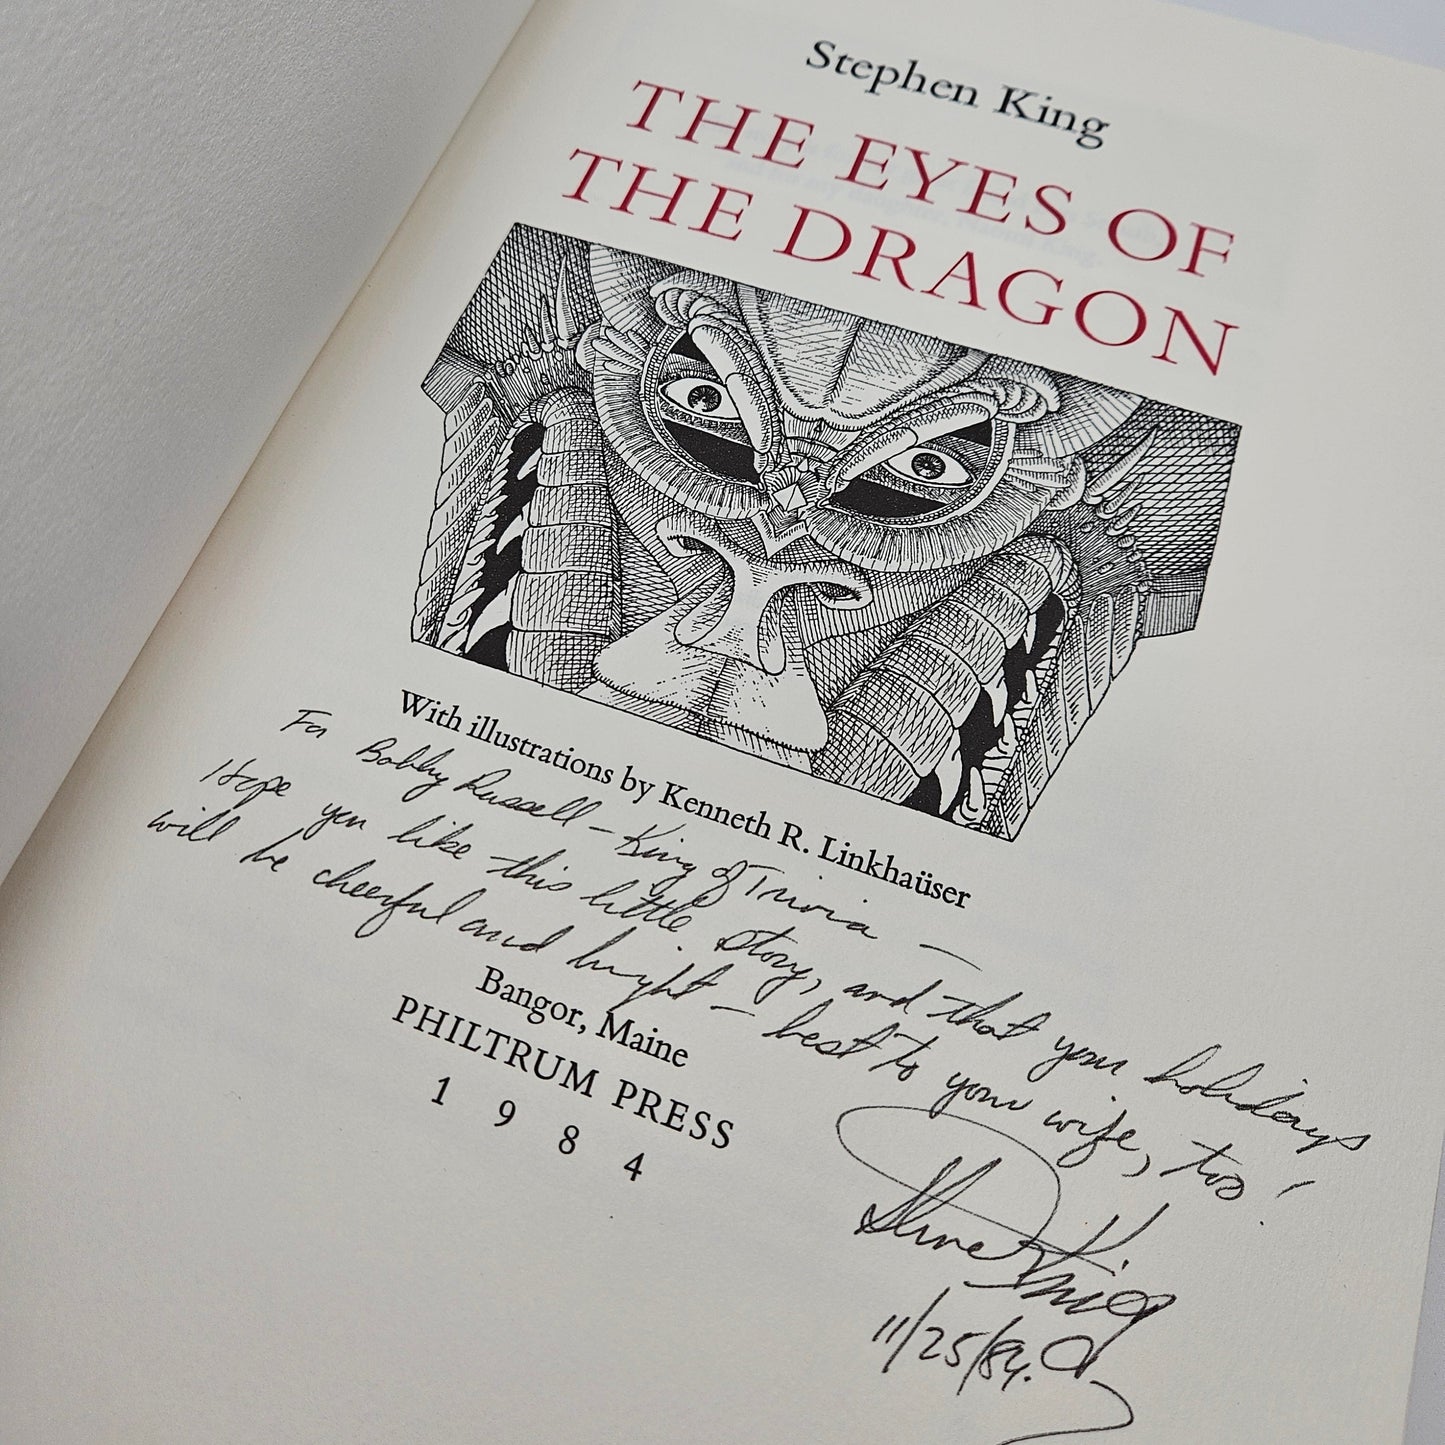 Stephen King
THE EYES OF
THE DRAGON
With illustrations by Kenneth R. Linkhaüser
For Bobby Russell – King of Trivia –
Hope you like this little story, and that your holidays
will be cheerful and bright – best to your wife, too!
Bangor, Maine
PHILTRUM PRESS
1984
Steve King
11/25/84.